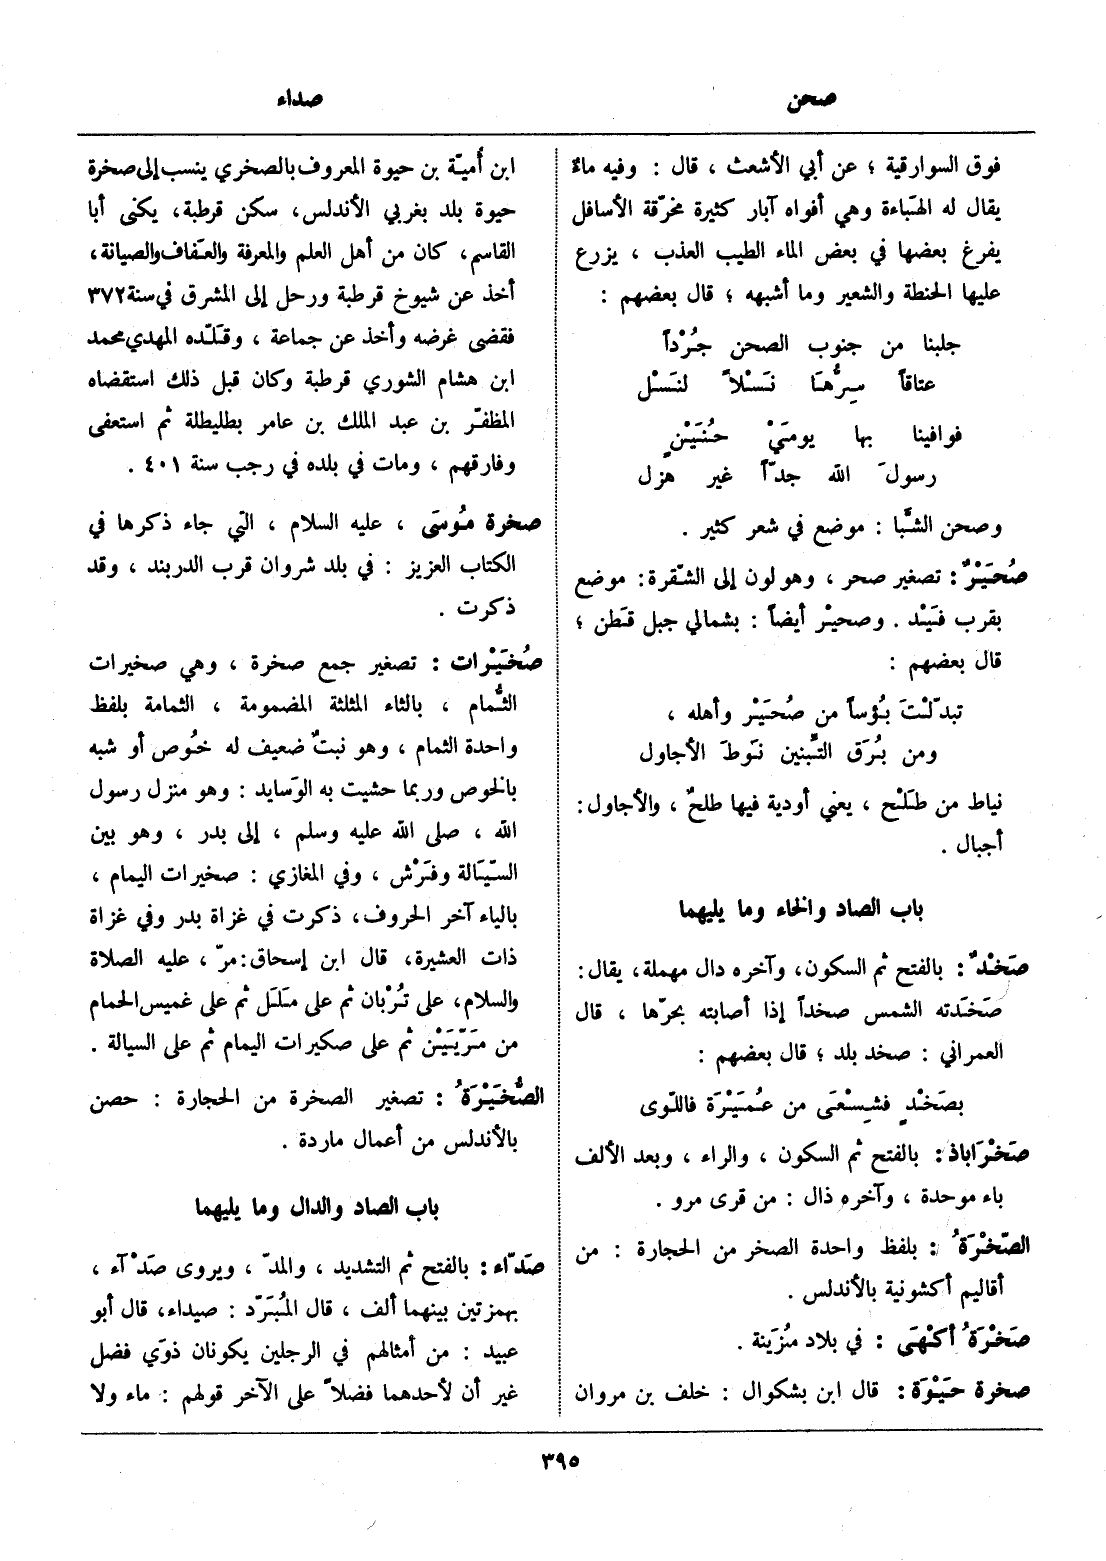 صحن
صداء
فوق السوارقية ؛ عن أبي الأشعث ، قال : وفيه ماءٌ
يقال له الهَباءة وهي أفواه آبار كثيرة مخرّقة الأسافل
يفرغ بعضها في بعض الماء الطيب العذب ، يزرع
عليها الحنطة والشعير وما أشبهه ؛ قال بعضهم :
جلبنا من جنوب الصحن جُرْداً
عتاقاً سِرُّهَا نَسْلاً لنَسْل
فوافينا بها يومَيْ حُنَيْنٍ
رسولَ الله جدّاً غير هزل
وصحن الشَّبا : موضع في شعر كثير .
صُحَيْرٌ : تصغير صحر ، وهو لون إلى الشّقرة : موضع
بقرب فَيْد . وصحيْر أيضاً : بشمالي جبل قَطَن ؛
قال بعضهم :
تبدّلْتَ بُؤساً من صُحَيْر وأهله ،
ومن بُرَق التَّبنين نَوطَ الأجاول
نياط من طَلْح ، يعني أودية فيها طلحٌ ، والأجاول :
أجبال .
باب الصاد والخاء وما يليهما
صَخْدٌ : بالفتح ثم السكون ، وآخره دال مهملة ، يقال :
صَخَدَته الشمس صخداً إذا أصابته بحرّها ، قال
العمراني : صخد بلد ؛ قال بعضهم :
بصَخْدٍ فشِسْعَى من عُمَيْرَة فاللّوى
صَخْرَاباذ : بالفتح ثم السكون ، والراء ، وبعد الألف
باء موحدة ، وآخره ذال : من قرى مرو .
الصّخْرَةُ : بلفظ واحدة الصخر من الحجارة : من
أقاليم أكشونية بالأندلس .
صَخْرَةُ أكْهَى : في بلاد مُزَينة .
صخرة حَيْوَة : قال ابن بشكوال : خلف بن مروان
ابن أُميّة بن حيوة المعروف بالصخري ينسب إلى صخرة
حيوة بلد بغربي الأندلس ، سكن قرطبة ، يكنى أبا
القاسم ، كان من أهل العلم والمعرفة والعَفاف والصيانة ،
أخذ عن شيوخ قرطبة ورحل إلى المشرق في سنة ٣٧٢
فقضى غرضه وأخذ عن جماعة ، وقَلّده المهدي محمد
ابن هشام الشوري قرطبة وكان قبل ذلك استقضاه
المظفّر بن عبد الملك بن عامر بطليطلة ثم استعفى
وفارقهم ، ومات في بلده في رجب سنة ٤٠١ .
صخرة مُوسَى ، عليه السلام ، التي جاء ذكرها في
الكتاب العزيز : في بلد شروان قرب الدربند ، وقد
ذكرت .
صُخَيْرات : تصغير جمع صخرة ، وهي صخيرات
الثُّمام ، بالثاء المثلثة المضمومة ، الثمامة بلفظ
واحدة الثمام ، وهو نبتٌ ضعيف له خُوص أو شبه
بالخوص وربما حشيت به الوَسايد : وهو منزل رسول
الله ، صلى الله عليه وسلم ، إلى بدر ، وهو بين
السّيَالة وفَرْش ، وفي المغازي : صخيرات اليمام ،
بالياء آخر الحروف ، ذكرت في غزاة بدر وفي غزاة
ذات العشيرة ، قال ابن إسحاق : مرّ ، عليه الصلاة
والسلام ، على تُرْبان ثم على مَلَل ثم على غميس الحمام
من مَرّيَيْن ثم على صكيرات اليمام ثم على السيالة .
الصُّخَيْرَةُ : تصغير الصخرة من الحجارة : حصن
بالأندلس من أعمال ماردة .
باب الصاد والدال وما يليهما
صَدّاء : بالفتح ثم التشديد ، والمدّ ، ويروى صَدْآء ،
بهمزتين بينهما ألف ، قال المُبَرّد : صيداء ، قال أبو
عبيد : من أمثالهم في الرجلين يكونان ذوَي فضل
غير أن لأحدهما فضلاً على الآخر قولهم : ماء ولا
٣٩٥